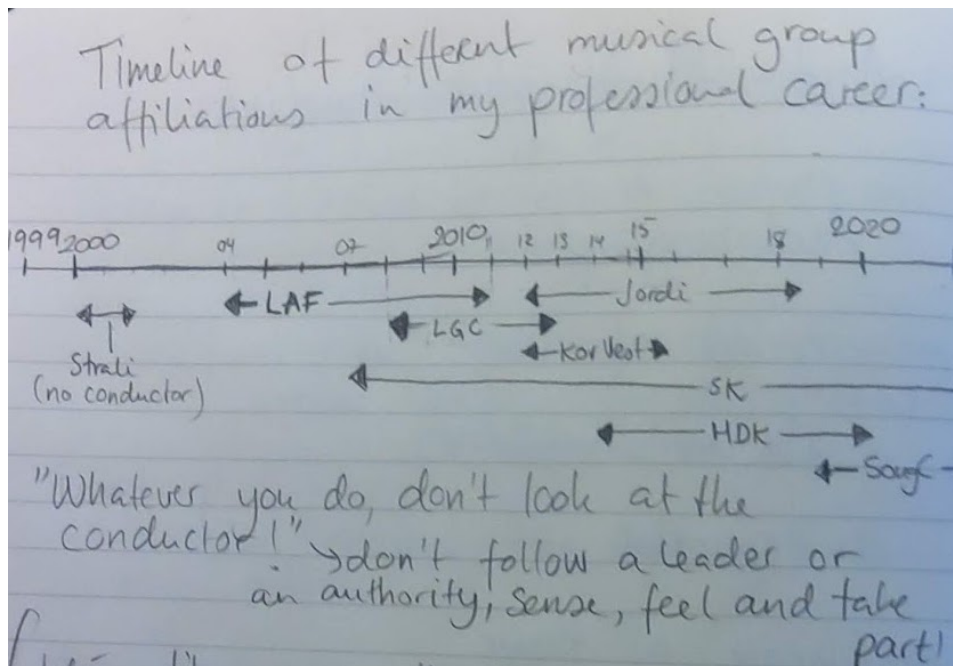 Timeline of different musical group
affiliations in my professional career:
1999 2000 04 07 2010 12 13 14 15 18 2020
LAF Jordi
LGC
Strali
Kor Vest
(no conductor)
SK
HDK
"Whatever you do, don't look at the
conductor!" don't follow a leader or
an authority, sense, feel and take
part!